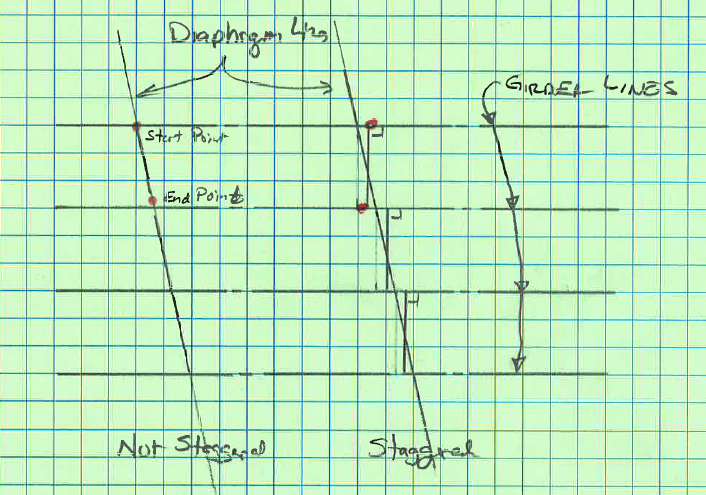 Diaphragm Line
GIRDER LINES
Start Point
End Point
Not Staggered
Staggered